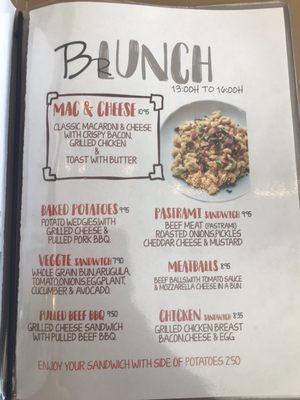 BRUNCH
13:00H TO 16:00H
MAC & CHEESE 10.95
CLASSIC MACARONI & CHEESE
WITH CRISPY BACON,
GRILLED CHICKEN
&
TOAST WITH BUTTER
BAKED POTATOES 9.95
POTATO WEDGIES, WITH
GRILLED CHEESE &
PULLED PORK BBQ.
PASTRAMI SANDWICH 9.95
BEEF MEAT (PASTRAMI)
ROASTED ONIONS, PICKLES
CHEDDAR CHEESE & MUSTARD
VEGGIE SANDWICH 7.90
WHOLE GRAIN BUN, ARUGULA,
TOMATO, ONIONS, EGGPLANT,
CUCUMBER & AVOCADO.
MEATBALLS 8.95
BEEF BALLS WITH TOMATO SAUCE
& MOZZARELLA CHEESE IN A BUN
PULLED BEEF BBQ 9.50
GRILLED CHEESE SANDWICH
WITH PULLED BEEF BBQ.
CHICKEN SANDWICH 8.95
GRILLED CHICKEN BREAST
BACON, CHEESE & EGG
ENJOY YOUR SANDWICH WITH SIDE OF POTATOES 2.50